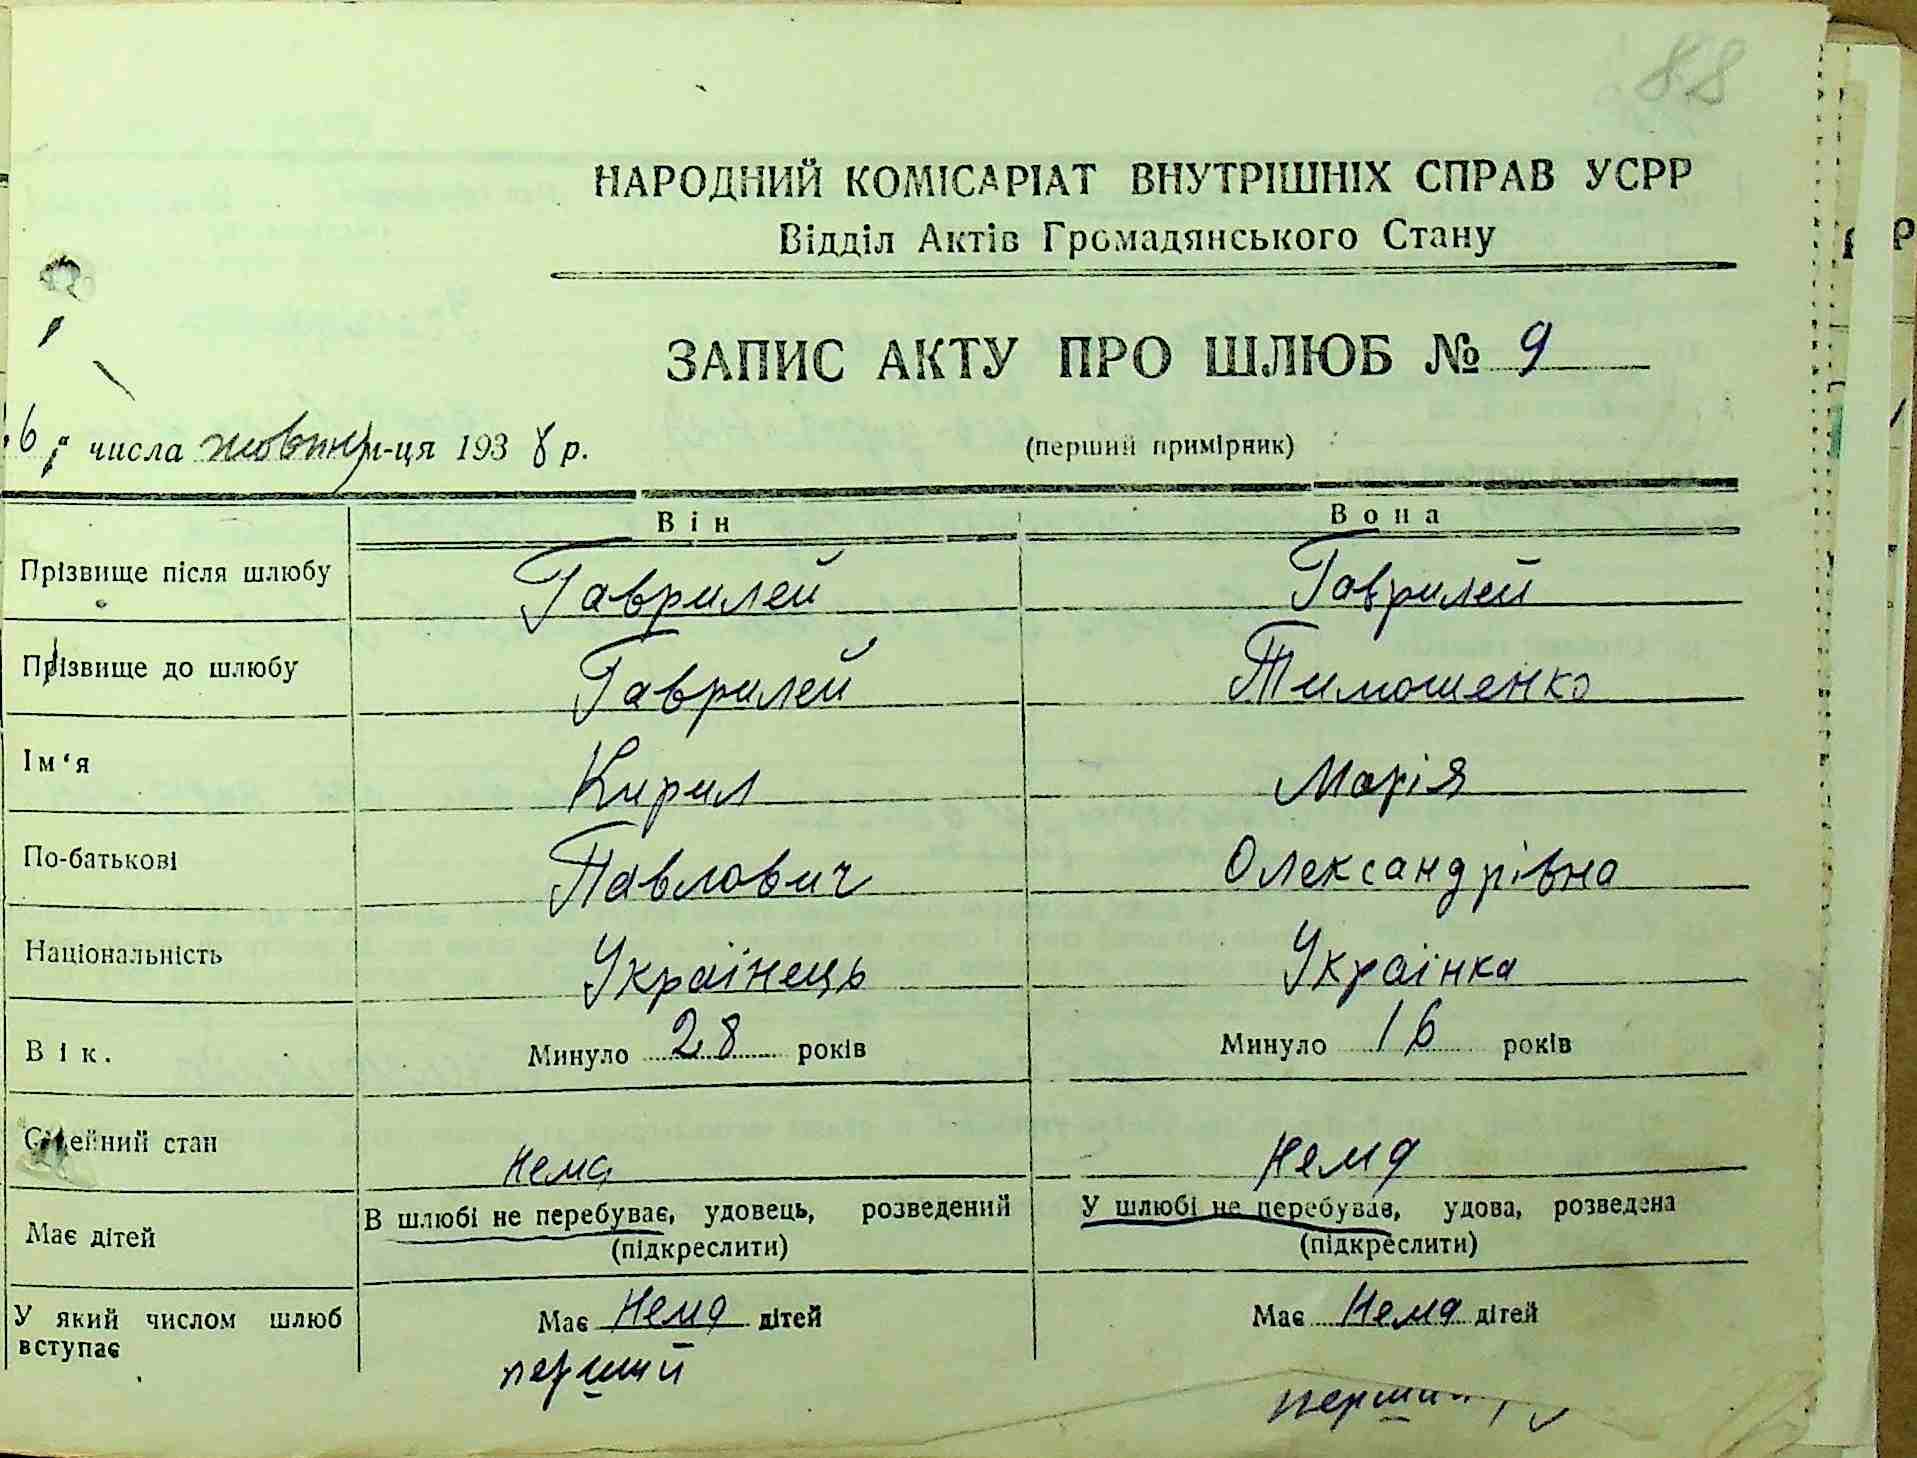 88
НАРОДНИЙ КОМІСАРІАТ ВНУТРІШНІХ СПРАВ УСРР
Відділ Актів Громадянського Стану
ЗАПИС АКТУ ПРО ШЛЮБ № 9
6 числа жовтня м-ця 1938 р.
(перший примірник)
Він Вона
Прізвище після шлюбу Гаврилей Гаврилей
Прізвище до шлюбу Гаврилей Тимошенко
Ім‘я Кирил Марія
По-батькові Павлович Олександрівна
Національність Українець Українка
Вік. Минуло 28 років Минуло 16 років
Сімейний стан нема нема
Має дітей В шлюбі не перебуває, удовець, розведений У шлюбі не перебуває, удова, розведена
(підкреслити) (підкреслити)
У який числом шлюб вступає Має нема дітей Має нема дітей
перший перший